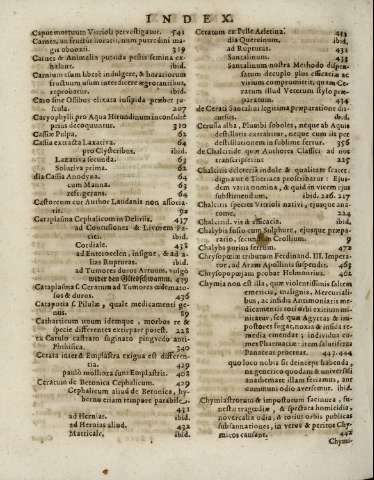 INDEX.
Caput mortuum Vitrioli pervestigatur. 541
Carnes, an fructus horarii, num putredini magis obnoxii. 319
Carnes & Animalia putrida pestis semina exhalant. ibid.
Carnium esum libere indulgere, & horariorum fructuum usum interdicere
reprobatur. ibid.
Caro sine Ossibus elixata insipida præbet juscula. 207
Caryophyllis pro Aqua Hirundinum inconsulte perius decoquuntur. 310
Cassiæ Pulpa. 62
Cassia extracta Laxativa. 64
pro Clysteribus. ibid.
Laxativa secunda. 62
Solutiva prima. 62
dia Cassia Anodyna. 64
cum Manna. 63
refrigerans. 64
Castoreum cur Author Laudanis non associarit. 92
Cataplasma Cephalicum in Deliriis. 437
ad Contusiones & Livorem Faciei. ibid.
Cordiale. 438
ad Enterocelen, insigne, & ad alias Rupturas. ibid.
ad Tumores duros Artuum, vulgò
Cataplasma s. Ceratum ad Tumores œdematosos & duros. 436
Catapotia s. Pilulæ, quale medicamenti genus. 89
Catharticum unum idemque, morbos re & specie differentes exturpare potest. 228
ex Catulo castrato suginato pingvedo anti-Phthisica. 340
Cerata inter & Emplastra exigua est differentia. 429
paulò molliora sunt Emplastris. 402
Ceratum de Betonica Cephalicum. 429
Cephalicum aliud de Betonica, hyberno etiam tempore parabile.
431
ad Hernias. ibid.
ad Hernias aliud. 432
Matricale. ibid.
Ceratum ex Pelle Arietina. 433
dia Quercinum. ibid.
ad Rupturas. 431
Santalinum. 433
Santalinum nostra Methodo dispensatum decuplo plus efficaciæ ac virium comprobatur, quam Ceratum illud Veterum stylo præparatum. 434
de Cerati Santalini legitima præparatione discursus. ibid.
Cerussa alba, Plumbi soboles, neque ab Aquis destillatis exturbatur, neque cum iis per destillationem in sublime fertur. 356
de Chalcitide quæ Authores Classici ad nos transcripserint 225
Chalcitis deleteria indole & qualitate scatet, dignatur à Theriaca proscribatur? Ejusdem varia nomina, & quid in vicem ejus substituendum. ibid. 226. 217
Chalcitis species Vitrioli nativi, ejusque anatome. 224
Chalcitid. vis & efficacia. ibid.
Chalybis fusio cum Sulphure, ejusque præparatio, secundum Crollium. 9
Chalybs purus lutum. 472
Chrysopœian tribuerunt Ferdinand. III. Imperator, ad Aram Apollinis suspendit. 463
Chrysopopœjam probat Helmontius. 462
Chymia non est illa, quam violentissimi salem emeticis, malignis, Mercurialibus, ac infidis Antimoniatis medicamentis tot orbi exitium minitatur, sed quam Agyrtas & impostores fugat, noxia & infida remedia emendat; individua comes Pharmaciæ: item omnia attinens Panaceas procreat. 447. 444
quo loco nobis sit deinceps habenda, ne generico quodam & universali anathemate illam feriamus, aut communi odio aversemur. ibid.
Chymiastrorum & impostorum facinora, funestæ tragœdiæ, & spectata homicidia, novercalia odia, & totius orbis publicas subsannationes, in veros & peritos Chymicos causant. 442
Chymi-